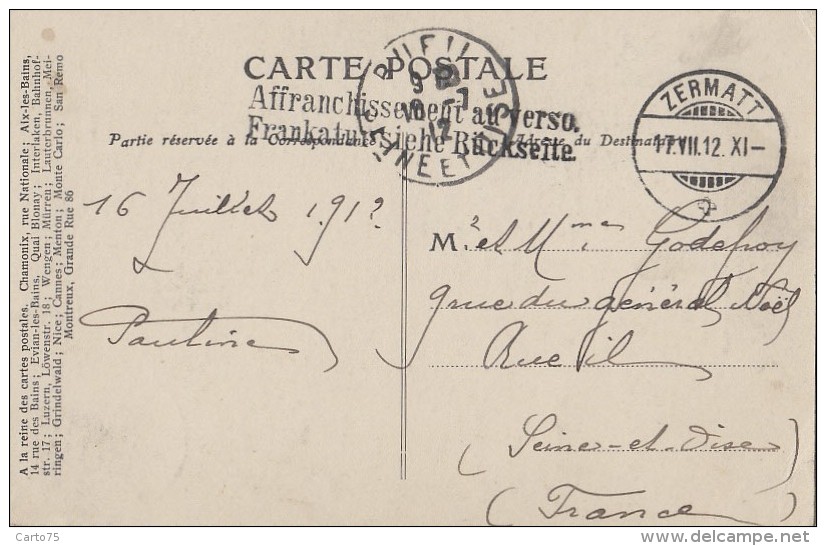 CARTE POSTALE
Affranchissement au verso.
Frankatur siehe Rückseite.
Partie réservée à la Correspondance
Adresse du Destinataire
RUEIL
SEINE ET OISE
ZERMATT
17.VII.12. XI-
16 Juillet 1912
Pauline
M. et Mme Godefroy
9 rue du général Noël
Rueil
(Seine-et-Oise)
(France)
A la reine des cartes postales. Chamonix, rue Nationale; Aix-les-Bains,
14 rue des Bains; Evian-les-Bains, Quai Blonay; Interlaken, Bahnhof-
str. 17; Luzern, Löwenstr. 18; Wengen; Mürren; Lauterbrunnen, Mei-
ringen; Grindelwald; Nice; Cannes; Menton; Monte Carlo; San Remo
Montreux, Grande Rue 86
Carto75